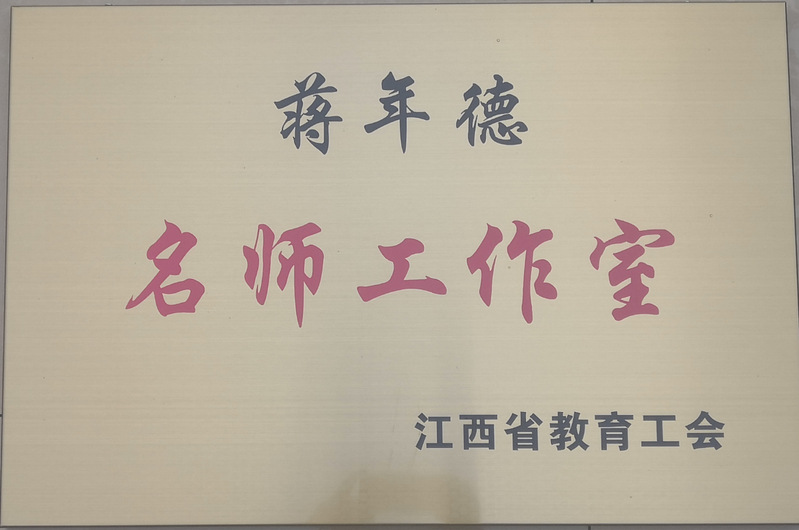 蒋年德
名师工作室
江西省教育工会